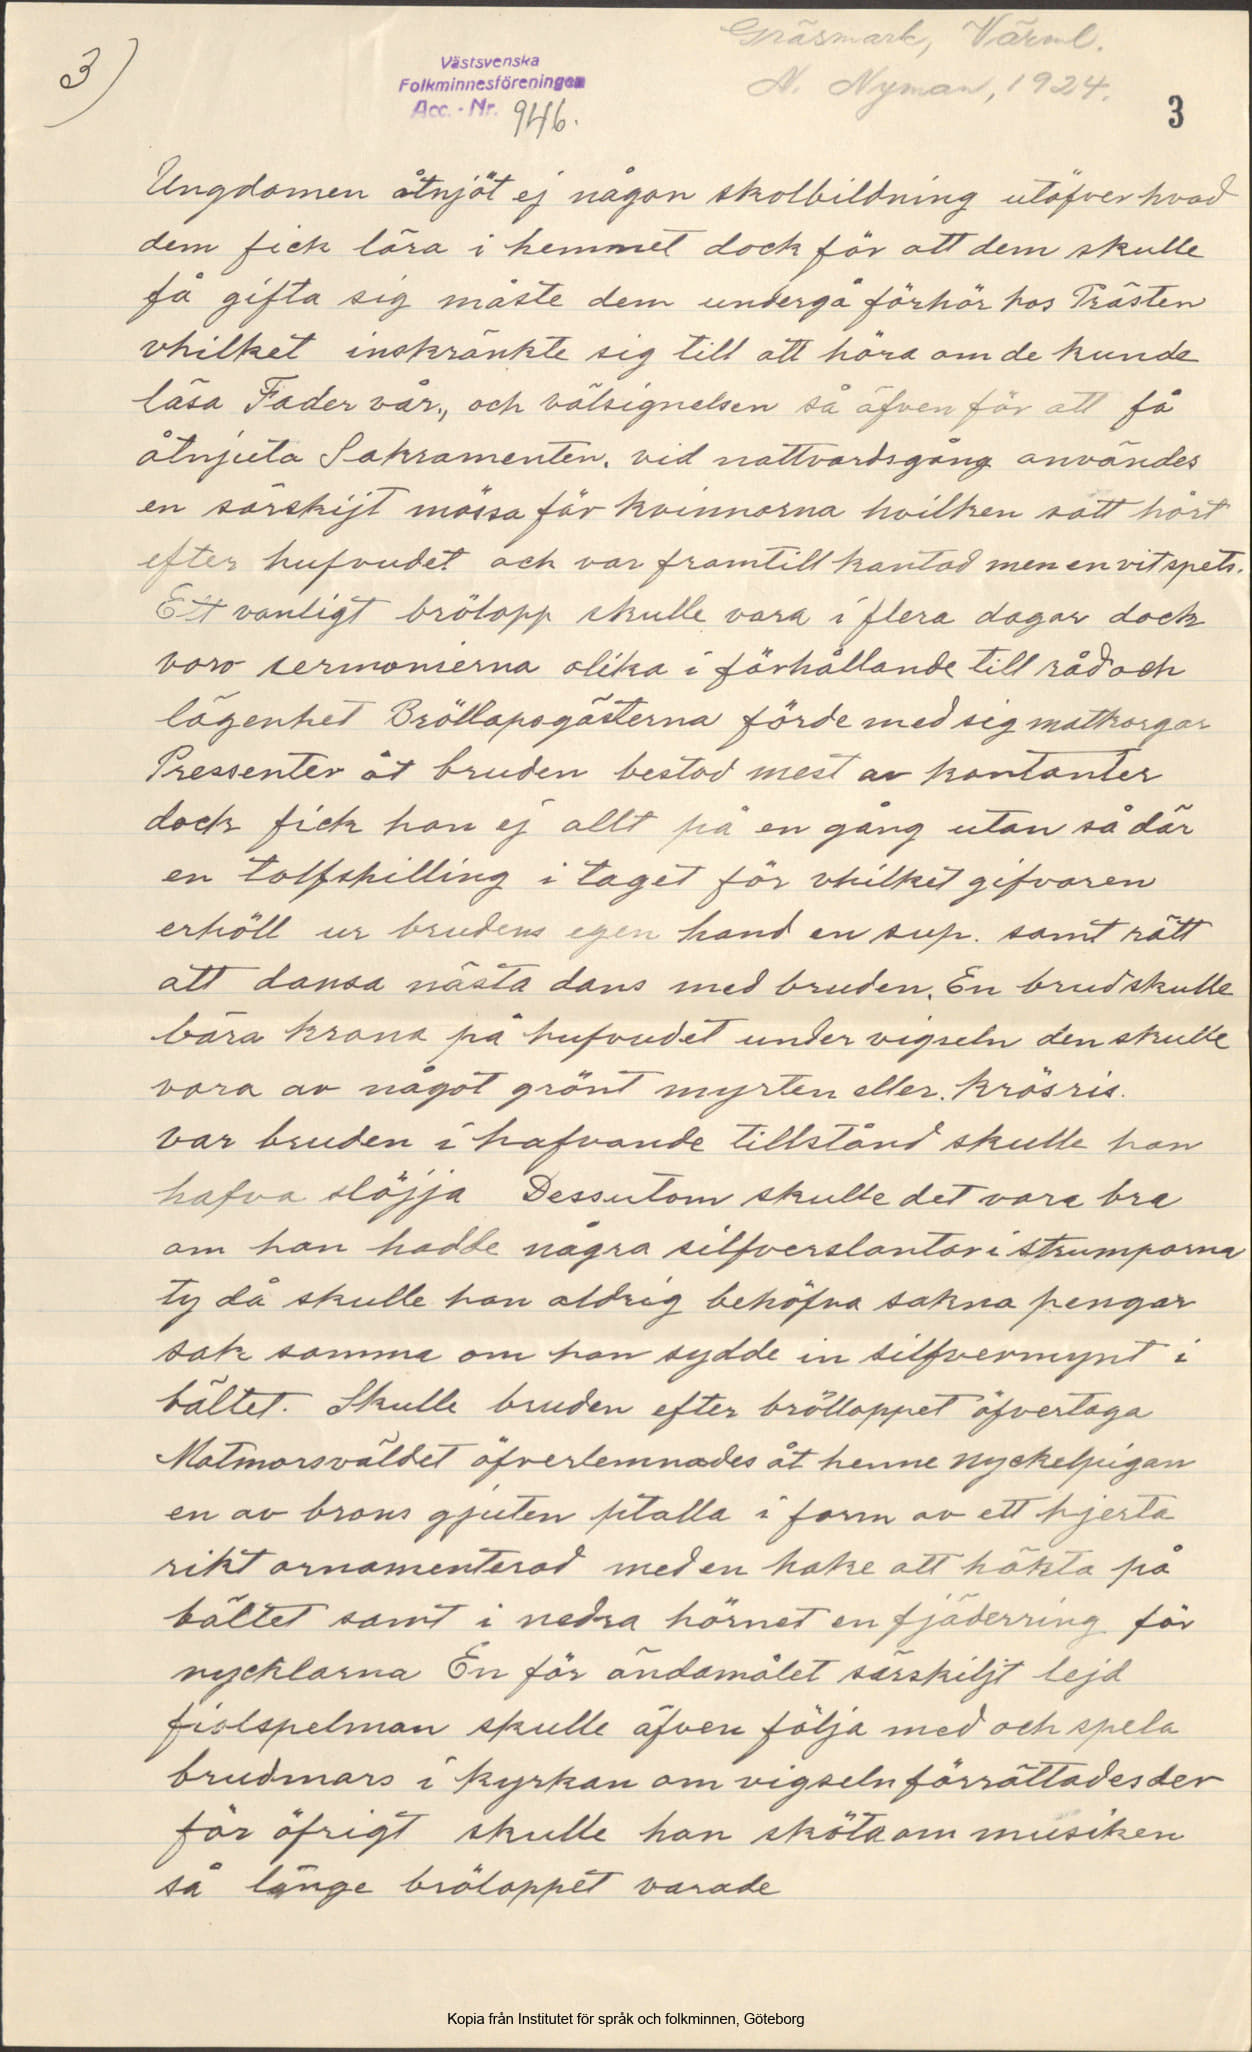 3)
Västsvenska
Folkminnesföreningen
Acc. - Nr. 946.
Gräsmark, Värml.
N. Nyman, 1924.
3
Ungdomen åtnjöt ej någon skolbildning utöfver hvad
dem fick lära i hemmet dock för att dem skulle
få gifta sig måste dem undergå förhör hos Prästen
vhilket inskränkte sig till att höra om de kunde
läsa Fader vår., och välsignelsen så äfven för att få
åtnjuta Sakramenten. vid nattvardsgång användes
en särskijt mössa för kvinnorna hvilken satt hårt
efter hufvudet och var framtill kantad men en vit spets.
Ett vanligt brölopp skulle vara i flera dagar dock
voro sermonierna olika i förhållande till råd och
lägenhet Bröllopsgästerna förde med sig matkorgar
Pressenter åt bruden bestod mest av kontanter
dock fick hon ej allt på en gång utan så där
en tolfskilling i taget för vhilket gifvaren
erhöll ur brudens egen hand en sup. samt rätt
att dansa nästa dans med bruden. En brud skulle
bära krona på hufvudet under vigseln den skulle
vara av något grönt myrten eller. krösris.
var bruden i hafvande tillstånd skulle hon
hafva slöjja Dessutom skulle det vara bra
om hon hadde några silfverslantar i strumporna
ty då skulle hon aldrig behöfva sakna pengar
sak samma om hon sydde in silfvermynt i
bältet. Skulle bruden efter brölloppet öfvertaga
Matmorsväldet öfverlemnades åt henne nyckelpigan
en av brons gjuten plalla i form av ett hjerta
rikt ornamenterad med en hake att häkta på
bältet samt i nedra hörnet en fjäderring för
nycklarna En för ändamålet särskiljt lejd
fiolspelman skulle äfven följa med och spela
brudmars i kyrkan om vigseln förrättades der
för öfrigt skulle han sköta om musiken
så länge bröloppet varade
Kopia från Institutet för språk och folkminnen, Göteborg